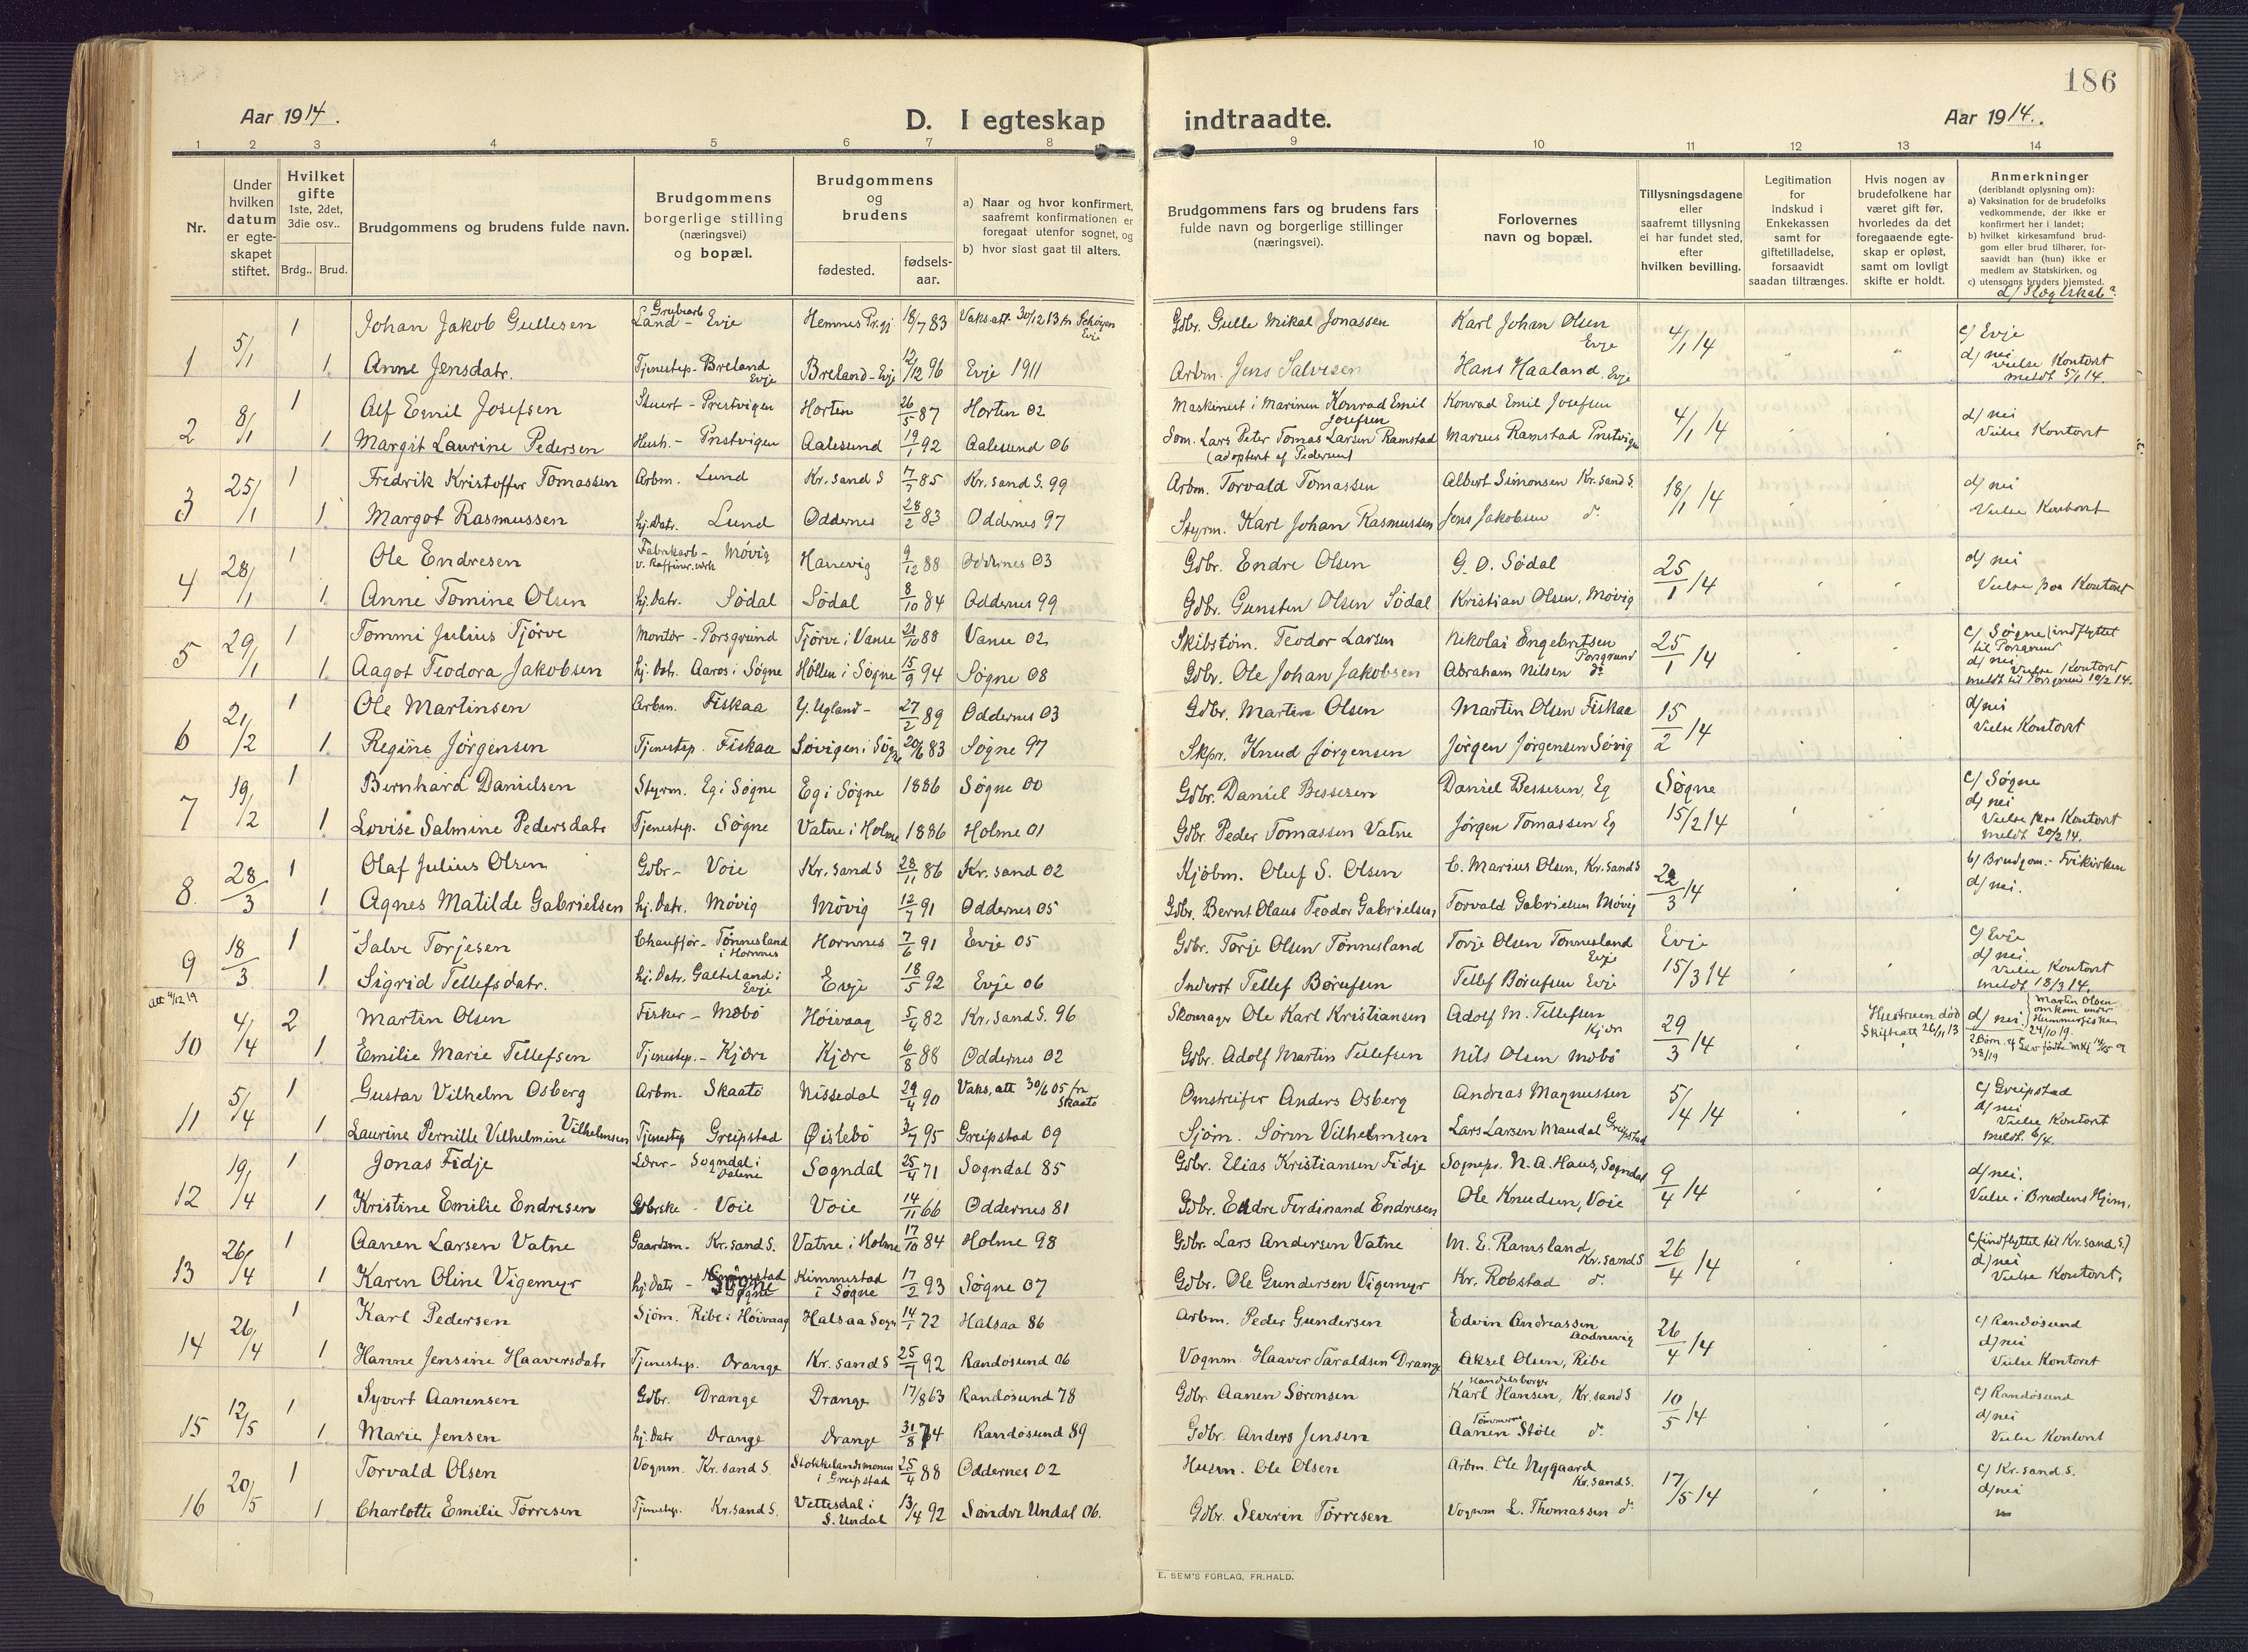 186
Aar 1914.
D. I egteskap indtraadte.
Aar 1914.
1 2 3 4 5 6 7 8 9 10 11 12 13 14
Nr.
Under hvilken datum er egteskapet stiftet.
Hvilket gifte 1ste, 2det, 3die osv..
Brdg.. Brud.
Brudgommens og brudens fulde navn.
Brudgommens borgerlige stilling (næringsvei) og bopæl.
Brudgommens og brudens
fødested.
fødsels-aar.
a) Naar og hvor konfirmert, saafremt konfirmationen er foregaat utenfor sognet, og
b) hvor sidst gaat til alters.
Brudgommens fars og brudens fars fulde navn og borgerlige stillinger (næringsvei).
Forlovernes navn og bopæl.
Tillysningsdagene eller saafremt tillysning ei har fundet sted, efter hvilken bevilling.
Legitimation for indskud i Enkekassen samt for giftetilladelse, forsaavidt saadan tiltrænges.
Hvis nogen av brudefolkene har været gift før, hvorledes da det foregaaende egteskap er opløst, samt om lovligt skifte er holdt.
Anmerkninger (deriblandt oplysning om):
a) Vaksination for de brudefolks vedkommende, der ikke er konfirmert her i landet;
b) hvilket kirkesamfund brudgom eller brud tilhører, forsaavidt han (hun) ikke er medlem av Statskirken, og
c) utensogns bruders hjemsted.
d) Slegtskab?
1 5/1 1 Johan Jakob Gullesen Grubearb Land - Evje Hemnes Pr.gj 18/7 83 Vaks att. 30/12 13 fr Evje Gdbr. Gulle Mikal Jonassen Karl Johan Olsen Evje 4/1 14 c) Evje
1 Anne Jensdatr. Tjenestep - Breland Evje Breland - Evje 12/12 96 Evje 1911 Arbm. Jens Salvesen Hans Haaland Evje d) nei Vielse Kontoret meldt 5/1 14.
2 8/1 1 Alf Emil Josefsen Stuert - Prestvigen Horten 26/5 87 Horten 02 Maskinist i Marinen Konrad Emil Josefsen Konrad Emil Josefsen 4/1 14 d) nei
1 Margit Laurine Pedersen Hush. - Prestvigen Aalesund 19/1 92 Aalesund 06 Lars Peter Tomas Larsen Ramstad (adoptert af Pedersen) Marius Ramstad Prestvigen Vielse Kontoret
3 25/1 1 Fredrik Kristoffer Tomassen Arbm. Lund Kr.sand S 7/7 85 Kr.sand S. 99 Arbm. Torvald Tomassen Albert Simonsen Kr.sand S. 18/1 14 d) nei
1 Margot Rasmussen hj.Datr. Lund Oddernes 28/2 83 Oddernes 97 Styrm. Karl Johan Rasmussen Jens Jakobsen do Vielse Kontoret
4 28/1 1 Ole Endresen Fabrikarb - Møvig v. Raffiner.verk Hanevig 9/12 88 Oddernes 03 Gdbr. Endre Olsen G. O. Sødal 25/1 14 d) nei
1 Anne Tomine Olsen hj.Datr. Sødal Sødal 8/10 84 Oddernes 99 Gdbr. Gunsten Olsen Sødal Kristian Olsen, Møvig Vielse paa Kontoret
5 29/1 1 Tommi Julius Tjørve Montør - Porsgrund Tjørve i Vanse 21/10 88 Vanse 02 Skibstøm. Teodor Larsen Nikolai Engebretsen Porsgrund 25/1 14 c) Søgne (indflyttet til Porsgrund
1 Aagot Teodora Jakobsen hj.Datr. Aaros i Søgne Høllen i Søgne 15/9 94 Søgne 08 Gdbr. Ole Johan Jakobsen Abraham Nilsen do d) nei Vielse Kontoret meldt til Porsgrund 10/2 14.
6 21/2 1 Ole Martinsen Arbm. Fiskaa Y. Ugland - 27/2 89 Oddernes 03 Gdbr. Martin Olsen Martin Olsen Fiskaa 15/2 14 d) nei
1 Regine Jørgensen Tjenestep. Fiskaa Søvigen i Søgne 20/6 83 Søgne 97 Skpr. Knud Jørgensen Jørgen Jørgensen Søvig Vielse Kontoret
7 19/2 1 Bernhard Danielsen Styrm. Eg i Søgne Eg i Søgne 1886 Søgne 00 Gdbr. Daniel Bessesen Daniel Bessesen, Eg Søgne 15/2 14 c) Søgne d) nei
1 Lovise Salmine Pedersdatr Tjenestep. Søgne Vatne i Holme 1886 Holme 01 Gdbr. Peder Tomassen Vatne Jørgen Tomassen Eg Vielse paa Kontoret meldt 20/2 14.
8 28/3 1 Olaf Julius Olsen Gdbr - Voie Kr.sand S 28/11 86 Kr.sand 02 Kjøbm. Oluf S. Olsen C. Marius Olsen, Kr.sand S 22/3 14 b) Brudgom. - Frikirken
1 Agnes Matilde Gabrielsen hj.Datr. Møvig Møvig 12/7 91 Oddernes 05 Gdbr. Bernt Olaus Teodor Gabrielsen Torvald Gabrielsen Møvig d) nei.
9 18/3 1 Salve Torjesen Chauffør - Tønnesland i Hornnes Hornnes 7/6 91 Evje 05 Gdbr. Torje Olsen Tønnesland Torje Olsen Tønnesland Evje Evje 15/3 14 c) Evje d) nei.
1 Sigrid Tellefsdatr. hj.Datr. Galteland i Evje Evje 18/5 92 Evje 06 Inderst Tellef Børufsen Tellef Børufsen Evje Vielse Kontoret meldt 18/3 14.
Att 4/12 19
10 4/4 2 Martin Olsen Fisker - Mæbø Høivaag 5/4 82 Kr.sand S. 96 Skomager Ole Karl Kristiansen Adolf M. Tellefsen Kjære 29/3 14 Hustruen död Skifteatt 26/11 13 d) nei. Martin Olsen omkom under Hummerfiske 24/10 19.
1 Emilie Marie Tellefsen Tjenestep. - Kjære Kjære 6/8 88 Oddernes 02 Gdbr. Adolf Martin Tellefsen Nils Olsen Mæbø
11 5/4 1 Gustav Vilhelm Osberg Arbm. Skaatø Nissedal 29/4 90 Vaks. att 30/6 05 fr Skaatø Omstreifer Anders Osberg Andreas Magnussen 5/4 14 c) Greipstad d) nei
1 Laurine Pernille Vilhelmine Vilhelmsen Tjenestep Greipstad Øislebø 3/7 95 Greipstad 09 Sjøm. Søren Vilhelmsen Lars Larsen Maudal Greipstad Vielse Kontoret meldt. 6/4.
12 19/4 1 Jonas Fidje Lærer - Sogndal i Dalene Sogndal 25/4 71 Sogndal 85 Gdbr. Elias Kristiansen Fidje Sognepr. N. A. Haus, Sogndal 9/4 14 d) nei.
1 Kristine Emilie Endresen Gdbrske - Voie Voie 14/11 66 Oddernes 81 Gdbr. Endre Ferdinand Endresen Ole Knudsen, Voie Vielse i Brudens Hjem.
13 26/4 1 Aanen Larsen Vatne Gaardsm. Kr.sand S. Vatne i Holme 17/10 84 Holme 98 Gdbr. Lars Andersen Vatne M. E. Ramsland Kr.sand S 26/4 14 c) (indflyttet til Kr.sand S.) d) nei
1 Karen Oline Vigemyr hj.Datr - Søgne Kimmestad i Søgne 17/2 93 Søgne 07 Gdbr. Ole Gundersen Vigemyr Kr. Robstad do Vielse Kontoret.
14 26/4 1 Karl Pedersen Sjöm. Ribe i Høivaag Halsaa Sogn 14/1 72 Halsaa 86 Arbm. Peder Gundersen Edvin Andreassen Aadnevig 26/4 14 c) Randøsund d) nei
1 Hanne Jensine Haaversdatr Tjenestep. Drange Kr.sand S 25/7 92 Randøsund 06 Vognm. Haaver Taraldsen Drange Aksel Olsen, Ribe Vielse Kontoret
15 12/5 1 Syvert Aanensen Gdbr. Drange Drange 17/8 63 Randøsund 78 Gdbr. Aanen Sørensen Handelsborger Karl Hansen, Kr.sand S 10/5 14 c) Randøsund d) nei
1 Marie Jensen hj.Datr Drange Drange 31/8 74 Randøsund 89 Gdbr. Anders Jensen Aanen Støle do Vielse Kontoret
16 20/5 1 Torvald Olsen Vognm. Kr.sand S. Stokkelandsmonen i Greipstad 25/4 88 Oddernes 02 Husm. Ole Olsen Arbm. Ole Nygaard Kr.sand S. 17/5 14 c) Kr.sand S. d) nei
1 Charlotte Emilie Torresen Tjenestep. Kr.sand S. Vettesdal i S. Undal 13/4 92 Søndre Undal 06. Gdbr. Severin Tørresen Vognm L. Thomassen do
E. SEM'S FORLAG, FR.HALD.